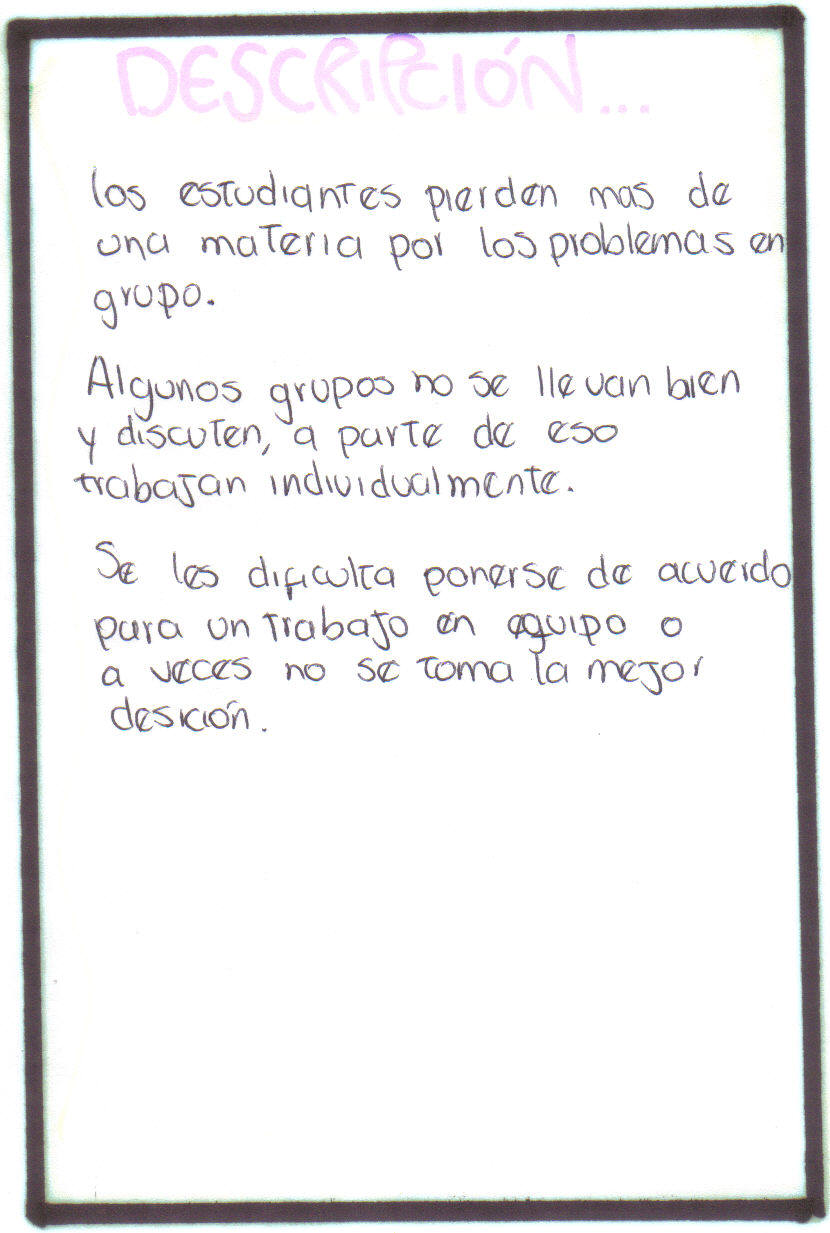 DESCRIPCIÓN...
los estudiantes pierden mas de
una materia por los problemas en
grupo.
Algunos grupos no se llevan bien
y discuten, a parte de eso
trabajan individualmente.
Se les dificulta ponerse de acuerdo
para un trabajo en equipo o
a veces no se toma la mejor
desición.